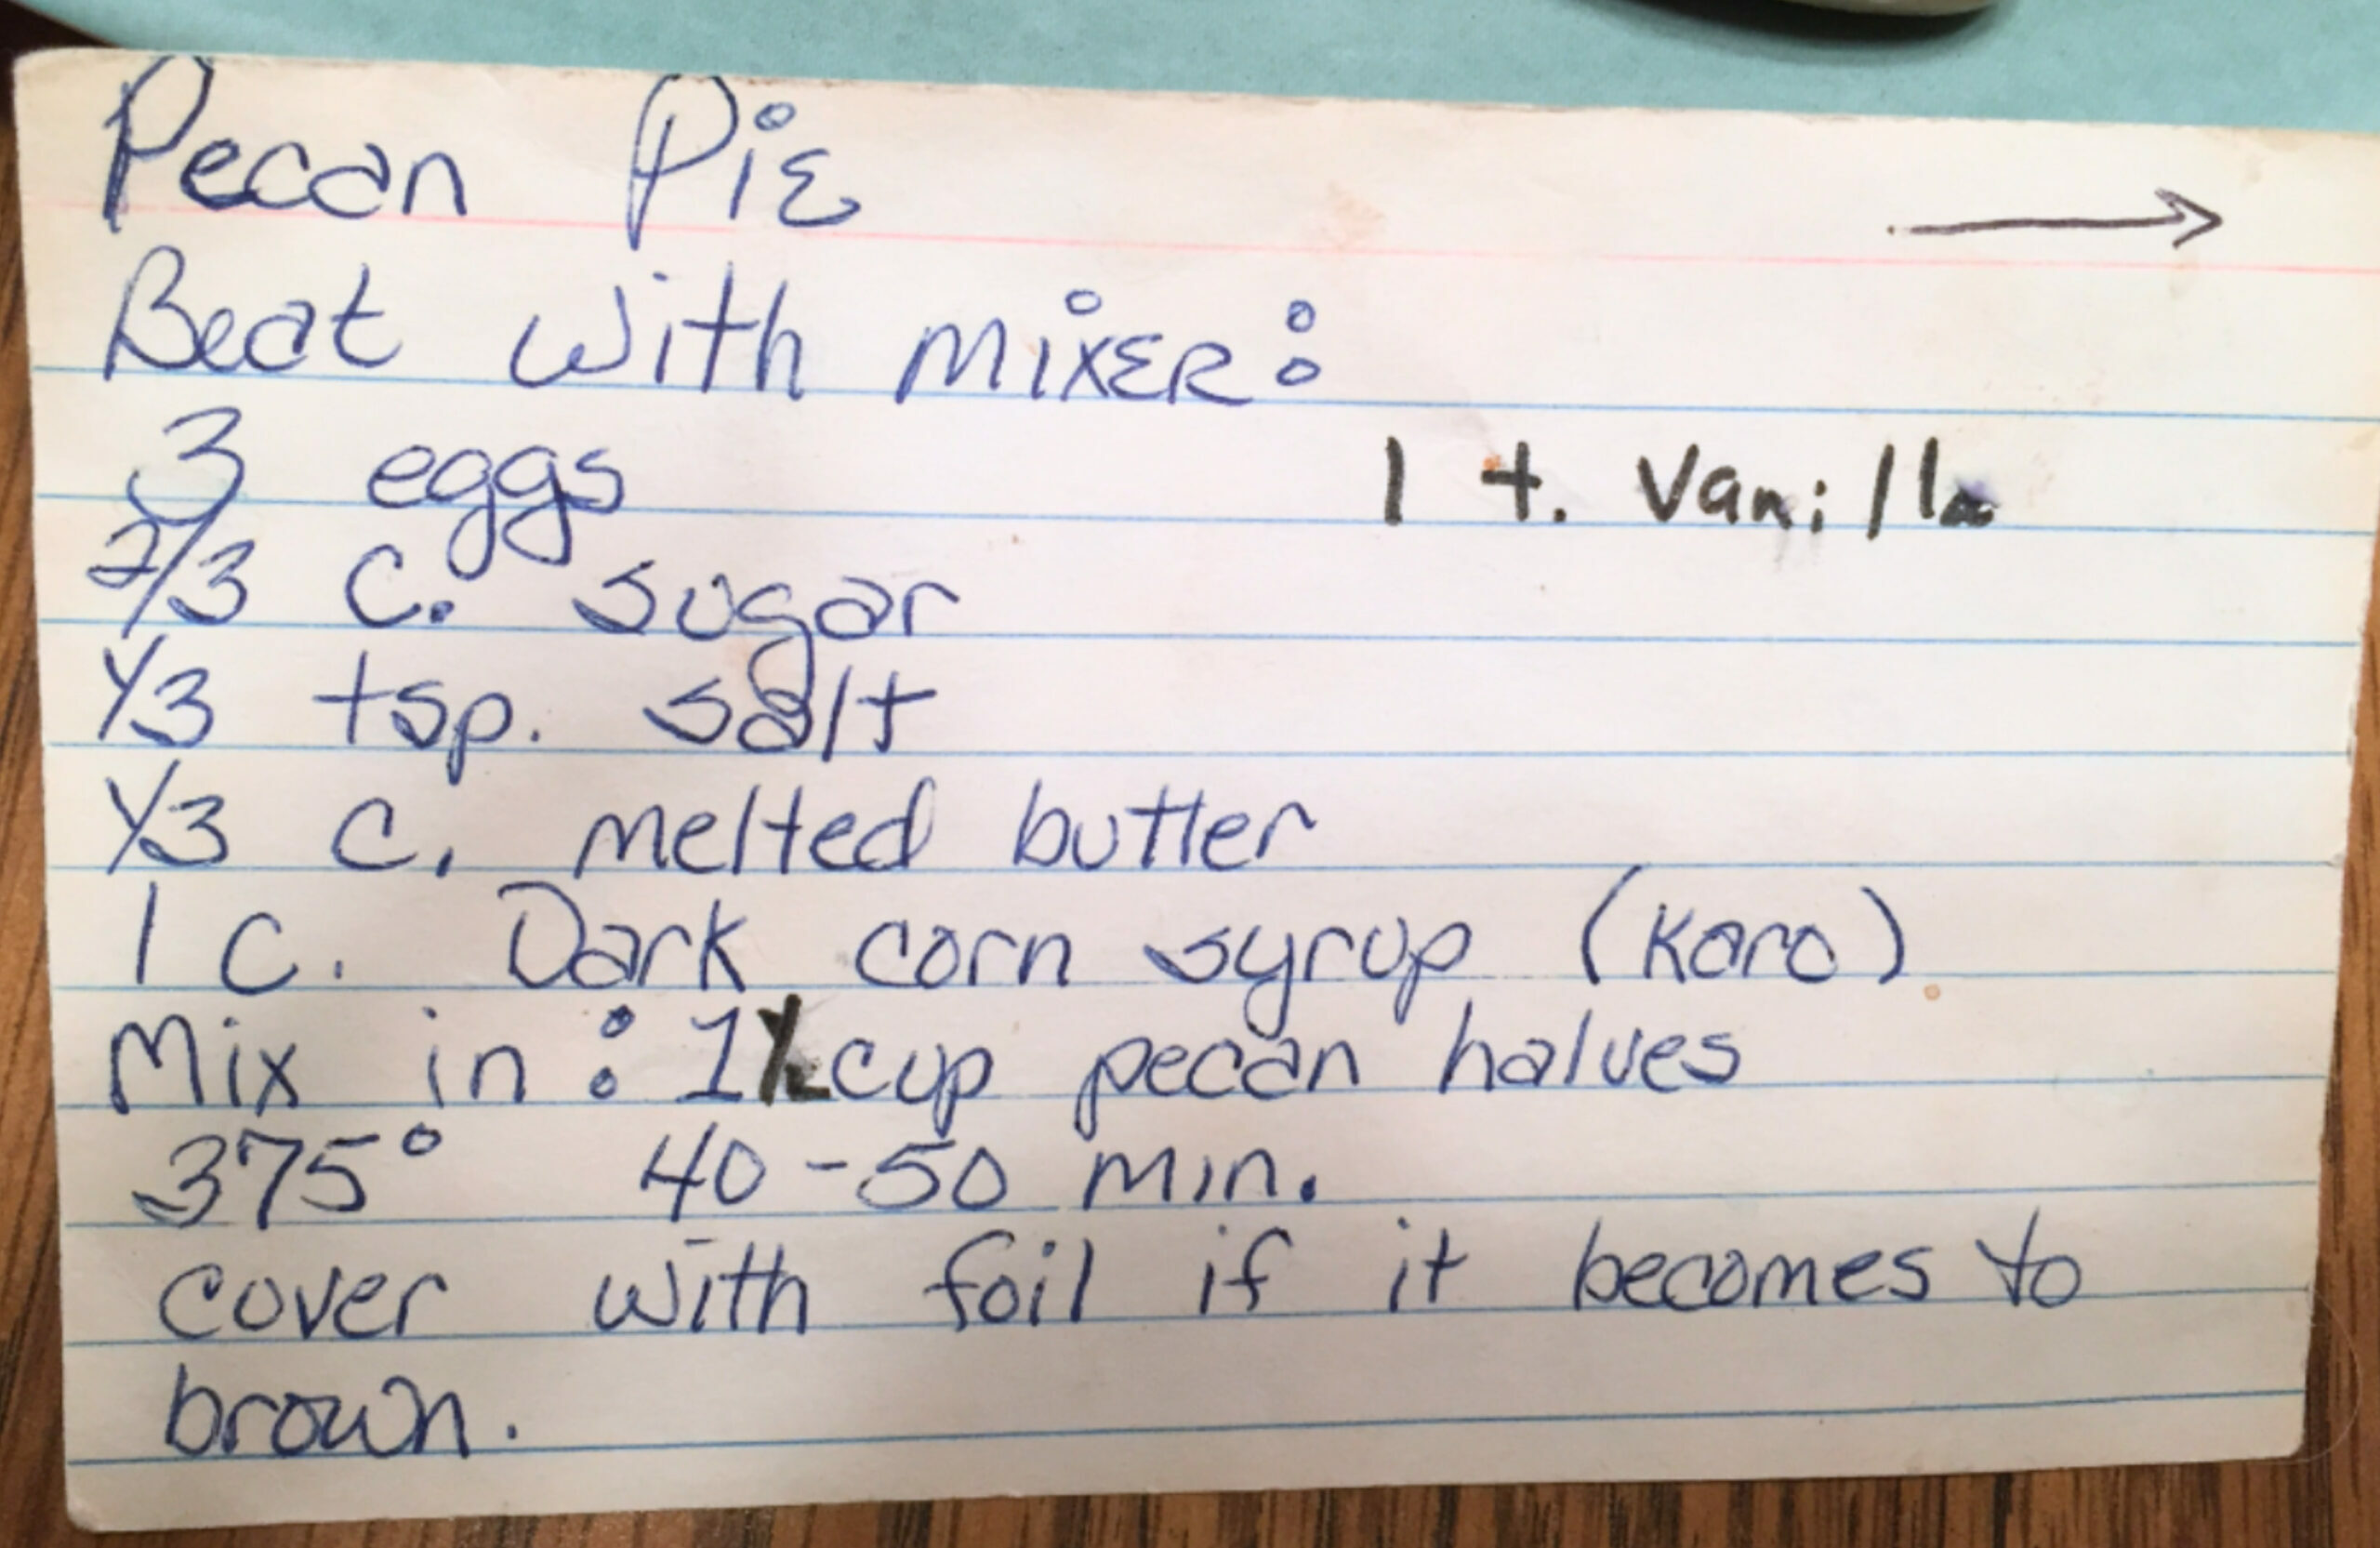 Pecan Pie
Beat with mixer:
3 eggs
1 t. Vanilla
2/3 c. sugar
1/3 tsp. salt
1/3 c. melted butter
1 c. Dark corn syrup (Karo)
Mix in: 1 cup pecan halves
375° 40-50 min.
cover with foil if it becomes to
brown.